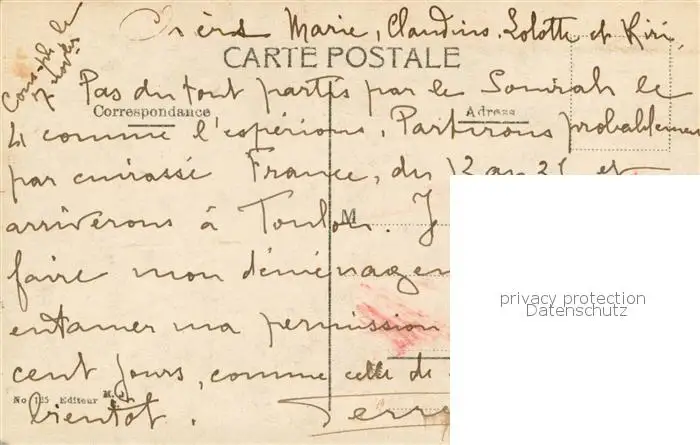 Const^ple le
7
Chers Marie, Claudius, Lolotte et Kiri,
CARTE POSTALE
Pas du tout partis par le Sourah le
Correspondance
Adresse
4 comme l'espérions. Partirons probablement
par cuirassé France, du 12 au 21 et
arriverons à Toulon. J
M
faire mon déménagem
entamer ma permission
cent jours, comme celle de
No 125 Editeur M. J.
bientôt. Perre
privacy protection
Datenschutz